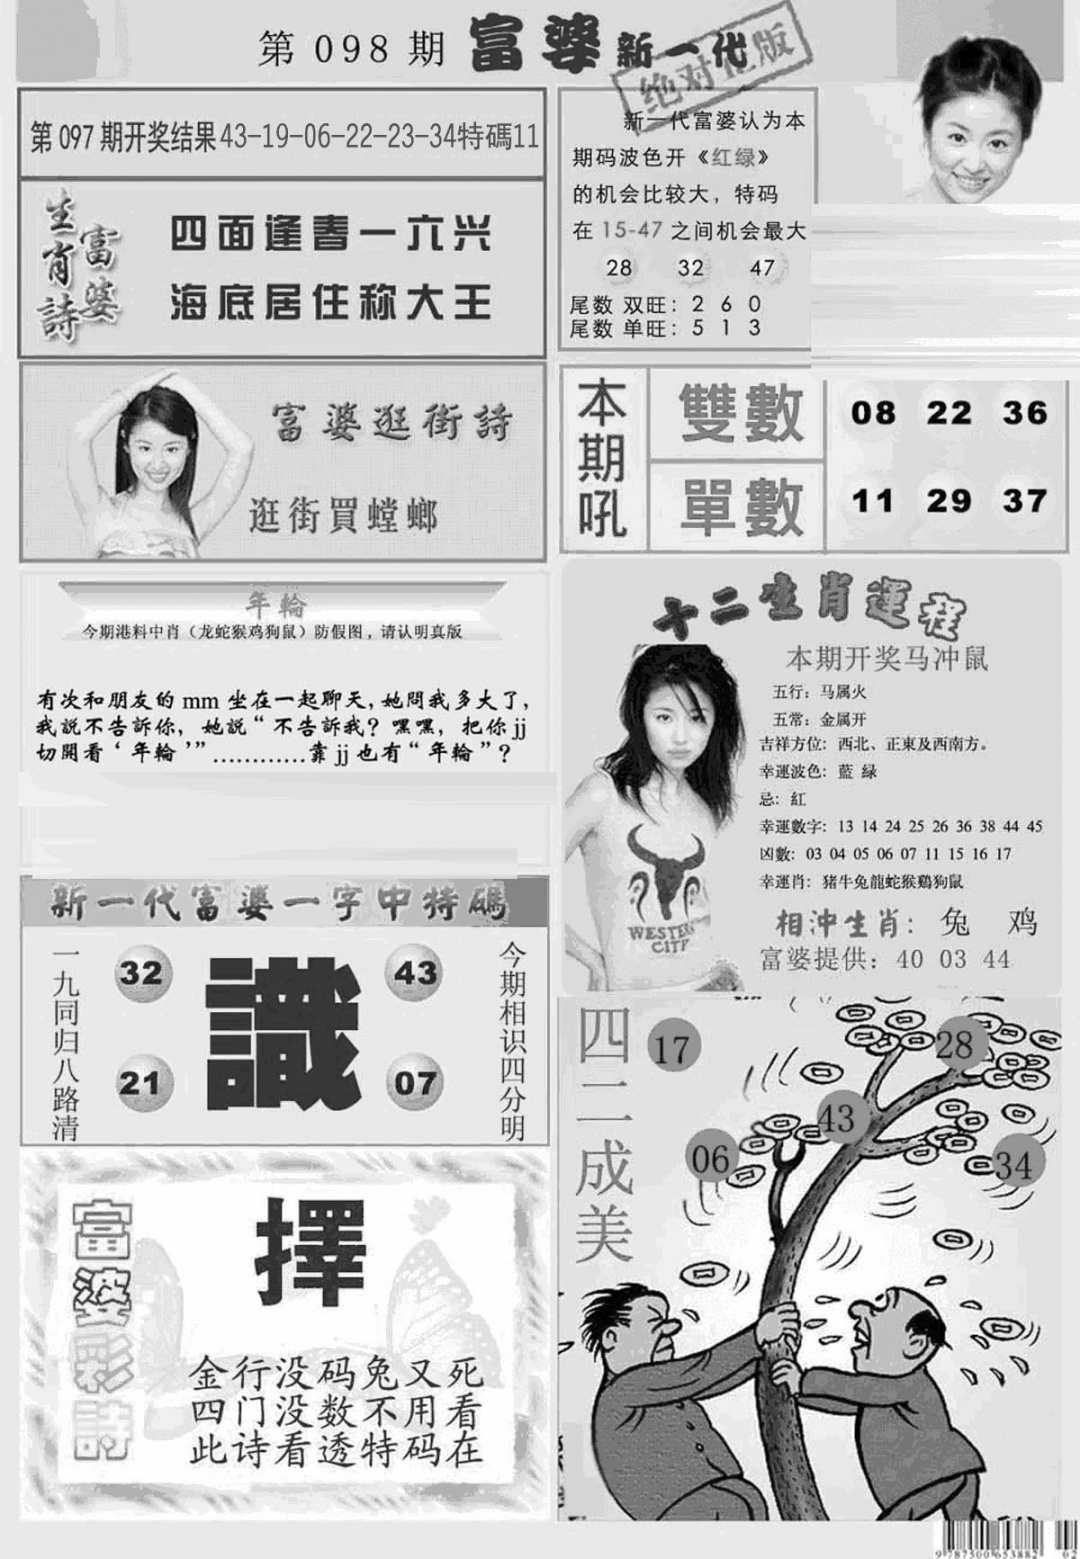 第098期 富婆新一代
绝对正版
第097期开奖结果43-19-06-22-23-34特碼11
富婆
生肖詩
四面逢春一六兴
海底居住称大王
新一代富婆认为本
期码波色开《红绿》
的机会比较大，特码
在15-47之间机会最大
28 32 47
尾数 双旺：2 6 0
尾数 单旺：5 1 3
富婆逛街詩
逛街買螳螂
本期吼
雙數 08 22 36
單數 11 29 37
年輪
今期港料中肖（龙蛇猴鸡狗鼠）防假图，请认明真版
有次和朋友的mm坐在一起聊天,她問我多大了,
我説不告訴你, 她說“不告訴我? 嘿嘿, 把你jj
切開看‘年輪’”…………靠jj也有“年輪”?
十二生肖運程
本期开奖马冲鼠
五行：马属火
五常：金属开
吉祥方位：西北、正東及西南方。
幸運波色：藍 緑
忌：紅
幸運數字：13 14 24 25 26 36 38 44 45
凶數：03 04 05 06 07 11 15 16 17
幸運肖：猪牛兔龍蛇猴鷄狗鼠
相沖生肖：兔 鸡
富婆提供：40 03 44
新一代富婆一字中特碼
一九同归八路清
32 43
識
21 07
今期相识四分明
四二成美
17 28
43
06 34
富婆彩詩
擇
金行没码兔又死
四门没数不用看
此诗看透特码在
9787500653882 02